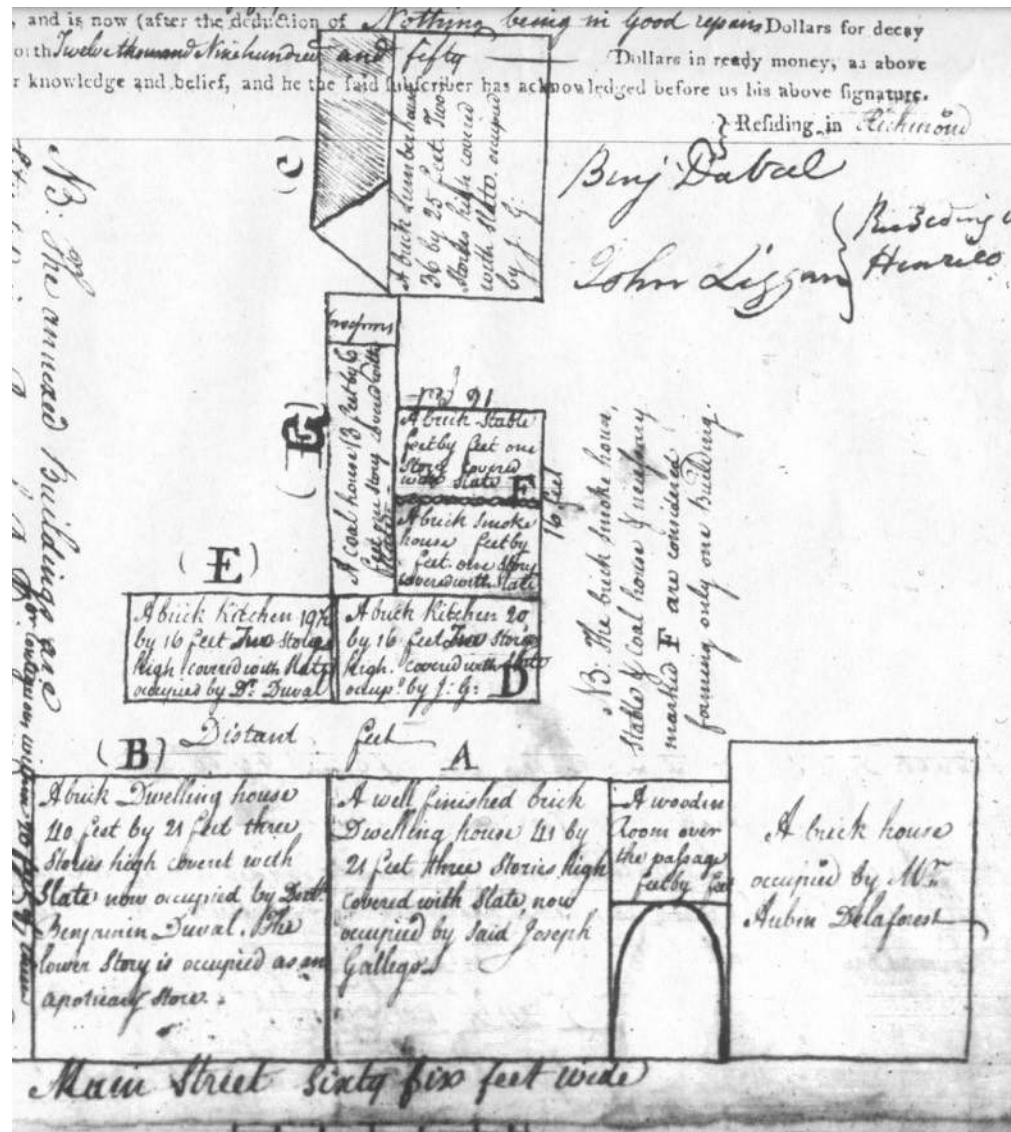 , and is now (after the deduction of Nothing being in Good repairs Dollars for decay
orth Twelve thousand Nine hundred and fifty Dollars in ready money, as above
r knowledge and belief, and he the said subscriber has acknowledged before us his above signature.
Residing in Richmond
Benj Duval
John Liggan
Residing
Henrico
(C)
A brick lumber house
36 by 25 feet Two
stories high covered
with Slate occupied
by J: G:
A Coal house 13 feet by 6
feet one Story covered with
Slate
(G)
A brick Stable
feet by feet one
Story covered
with Slate
F
A brick Smoke
house feet by
feet one Story
covered with Slate
16 feet
NB: The brick smoke house,
Stable & Coal house & necessary
marked F are considered
forming only one building.
NB
The annexed Buildings are
(E)
A brick Kitchen 19½
by 16 feet Two Stories
high covered with Slate
occupied by Dr. Duval
A brick Kitchen 20
by 16 feet Two Stories
high covered with Slate
occupd. by J: G:
D
Distant feet
(B)
A
A brick Dwelling house
40 feet by 21 feet three
stories high coveret with
Slate now occupied by Doctr.
Benjamin Duval. The
lower Story is occupied as an
apothecary Store.
A well finished brick
Dwelling house 41 by
21 feet three Stories high
Covered with Slate, now
occupied by said Joseph
Gallego
A wooden
Room over
the passage
feet by feet
A brick house
occupied by Mr.
Aubin Delaforest
Main Street Sixty six feet wide